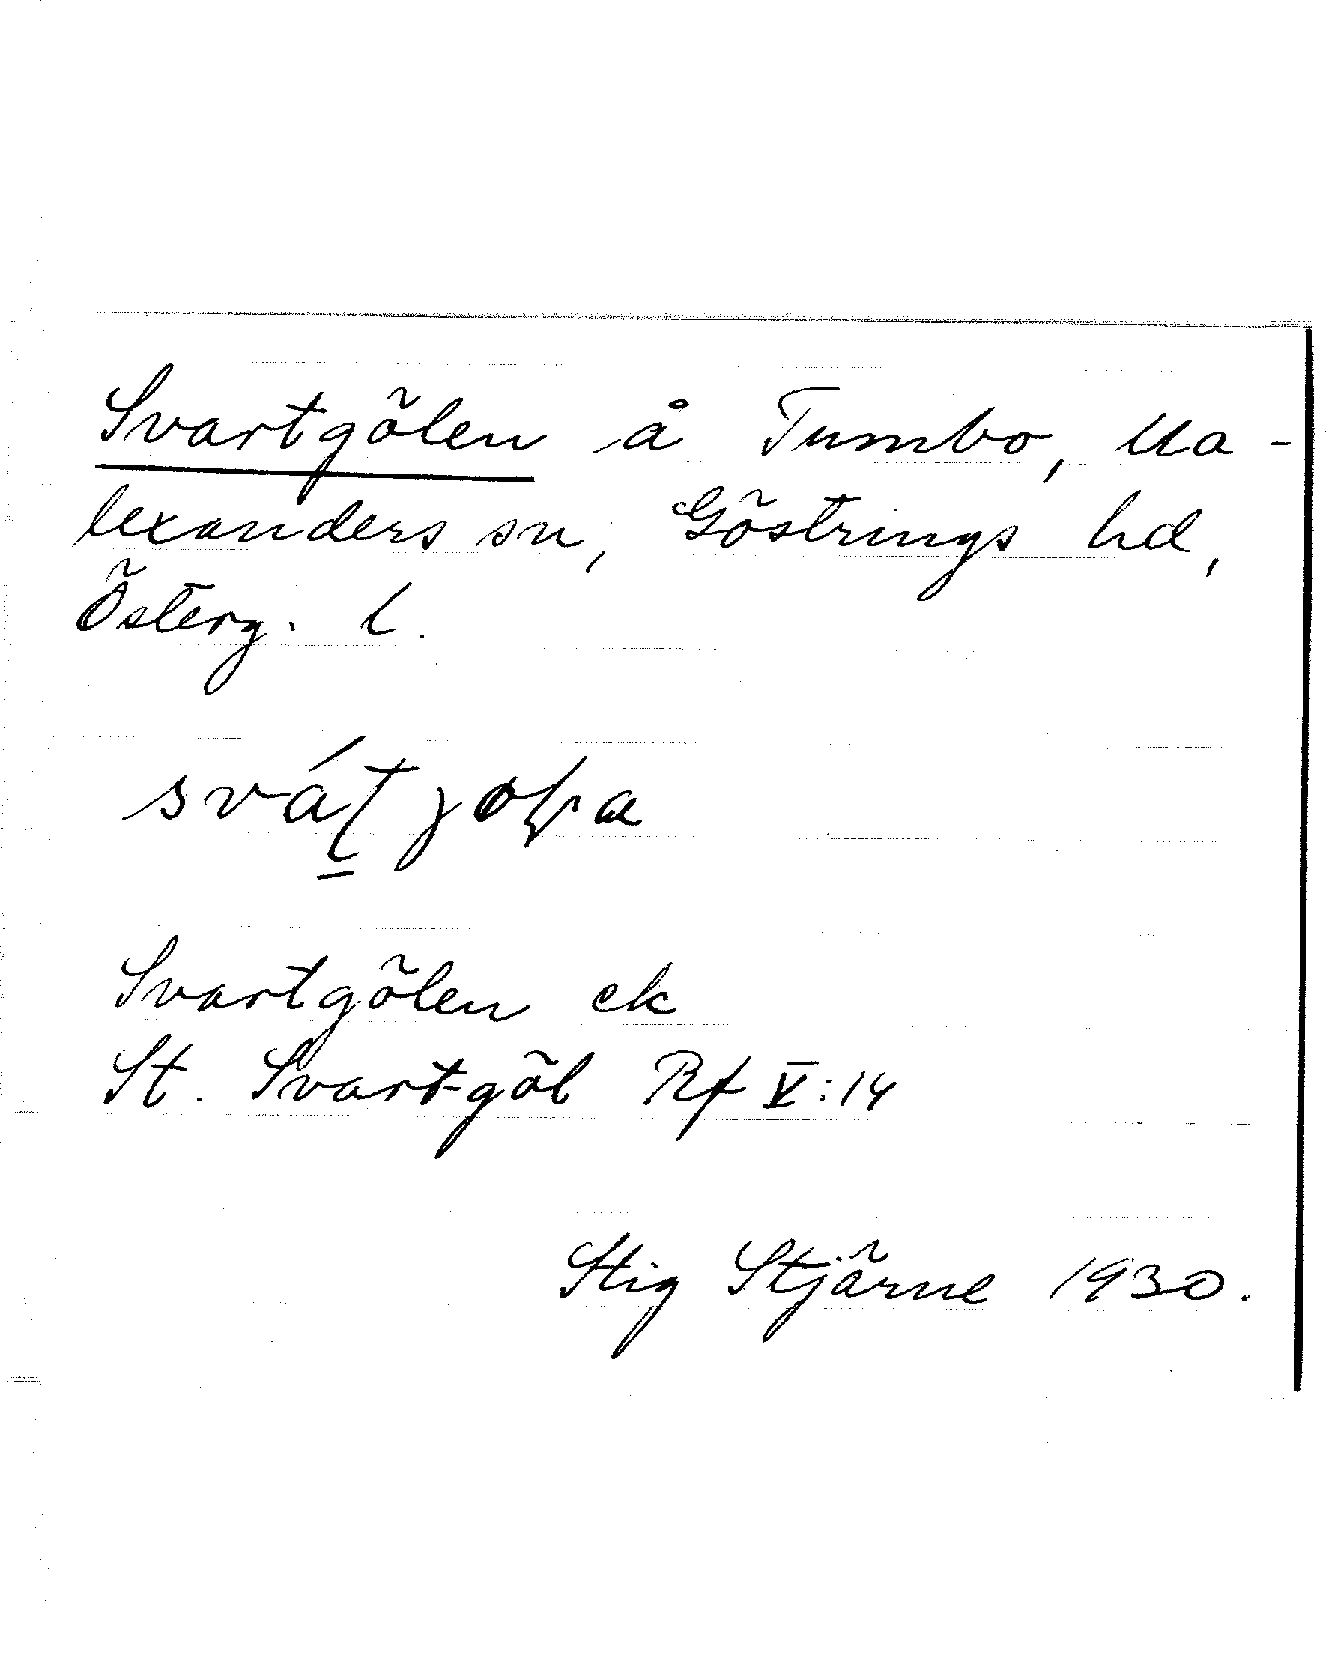 Svartgölen å Tumbo, Ma-
lexanders sn, Göstrings hd,
Österg. l.
Svartgölen ek
St. Svart-göl Rf V:14
Stig Stjärne 1930.